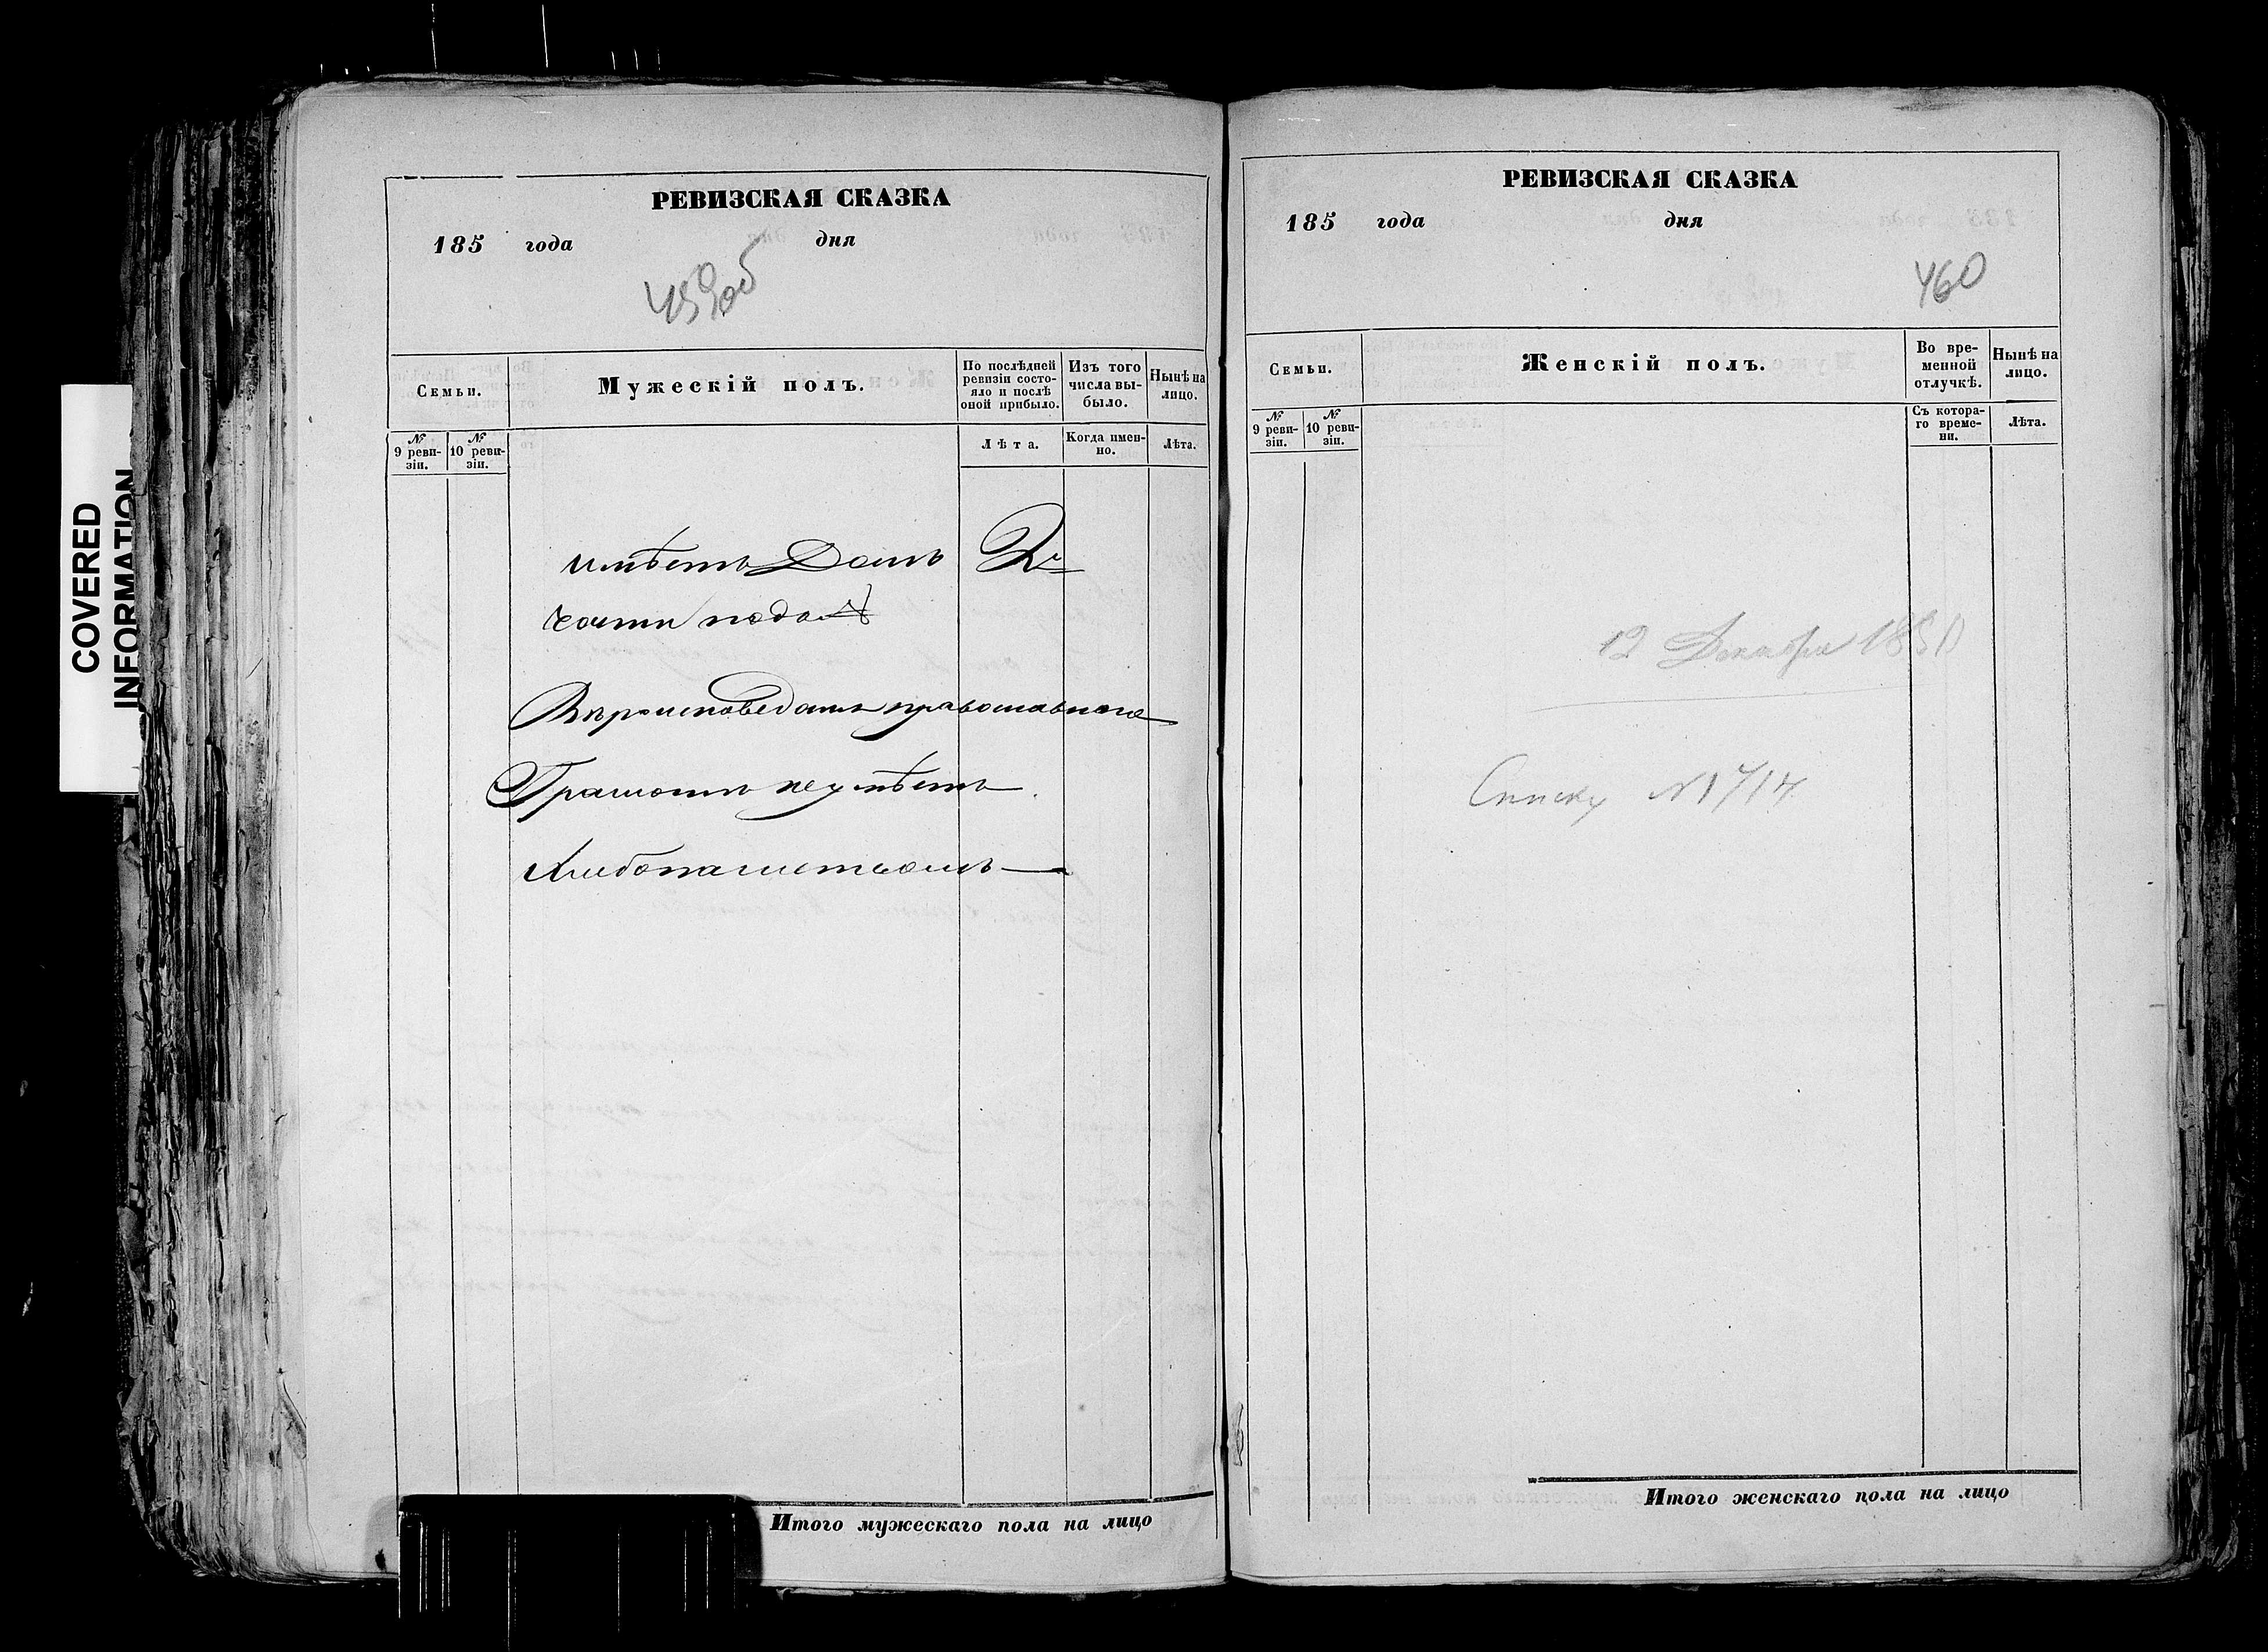 COVERED
INFORMATION
РЕВИЗСКАЯ СКАЗКА
185 года дня
459об
Семьи.
Мужескій полъ.
По послѣдней ревизіи состояло и послѣ оной прибыло.
Изъ того числа выбыло.
Нынѣ на лицо.
№ 9 ревизіи.
№ 10 ревизіи.
Лѣта.
Когда именно.
Лѣта.
имѣетъ Домъ 2й
части подъ №
Вѣроисповеданія православнаго
Грамотѣ неумѣетъ
Хлебопашествомъ
Итого мужескаго пола на лицо
РЕВИЗСКАЯ СКАЗКА
185 года дня
460
Семьи.
Женскій полъ.
Во временной отлучкѣ.
Нынѣ на лицо.
№ 9 ревизіи.
№ 10 ревизіи.
Съ котораго времени.
Лѣта.
12 Декабря 1850
Списку №1714
Итого женскаго пола на лицо